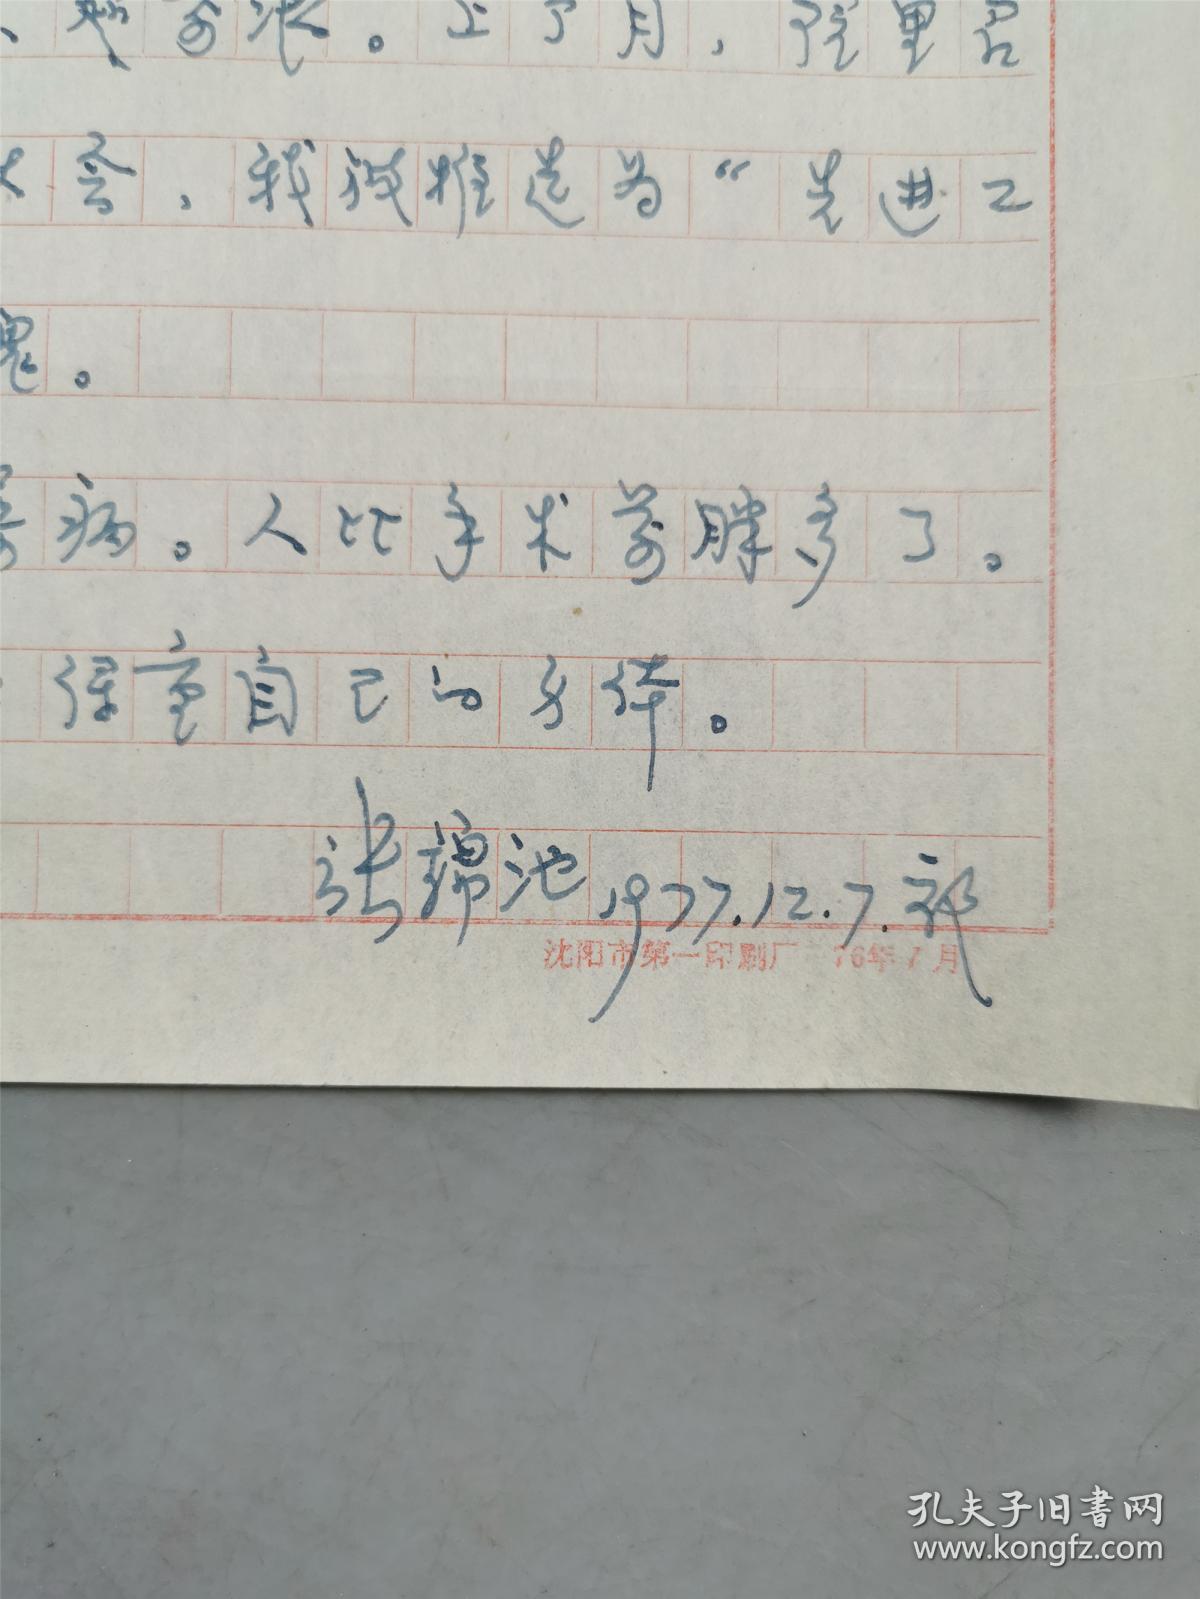 。上个月，院里召
大会，我被推选为“先进工
愧。
病。人比手术前胖多了。
保重自己的身体。
张锦池 1977.12.7.
沈阳市第一印刷厂 76年7月
孔夫子旧书网
www.kongfz.com